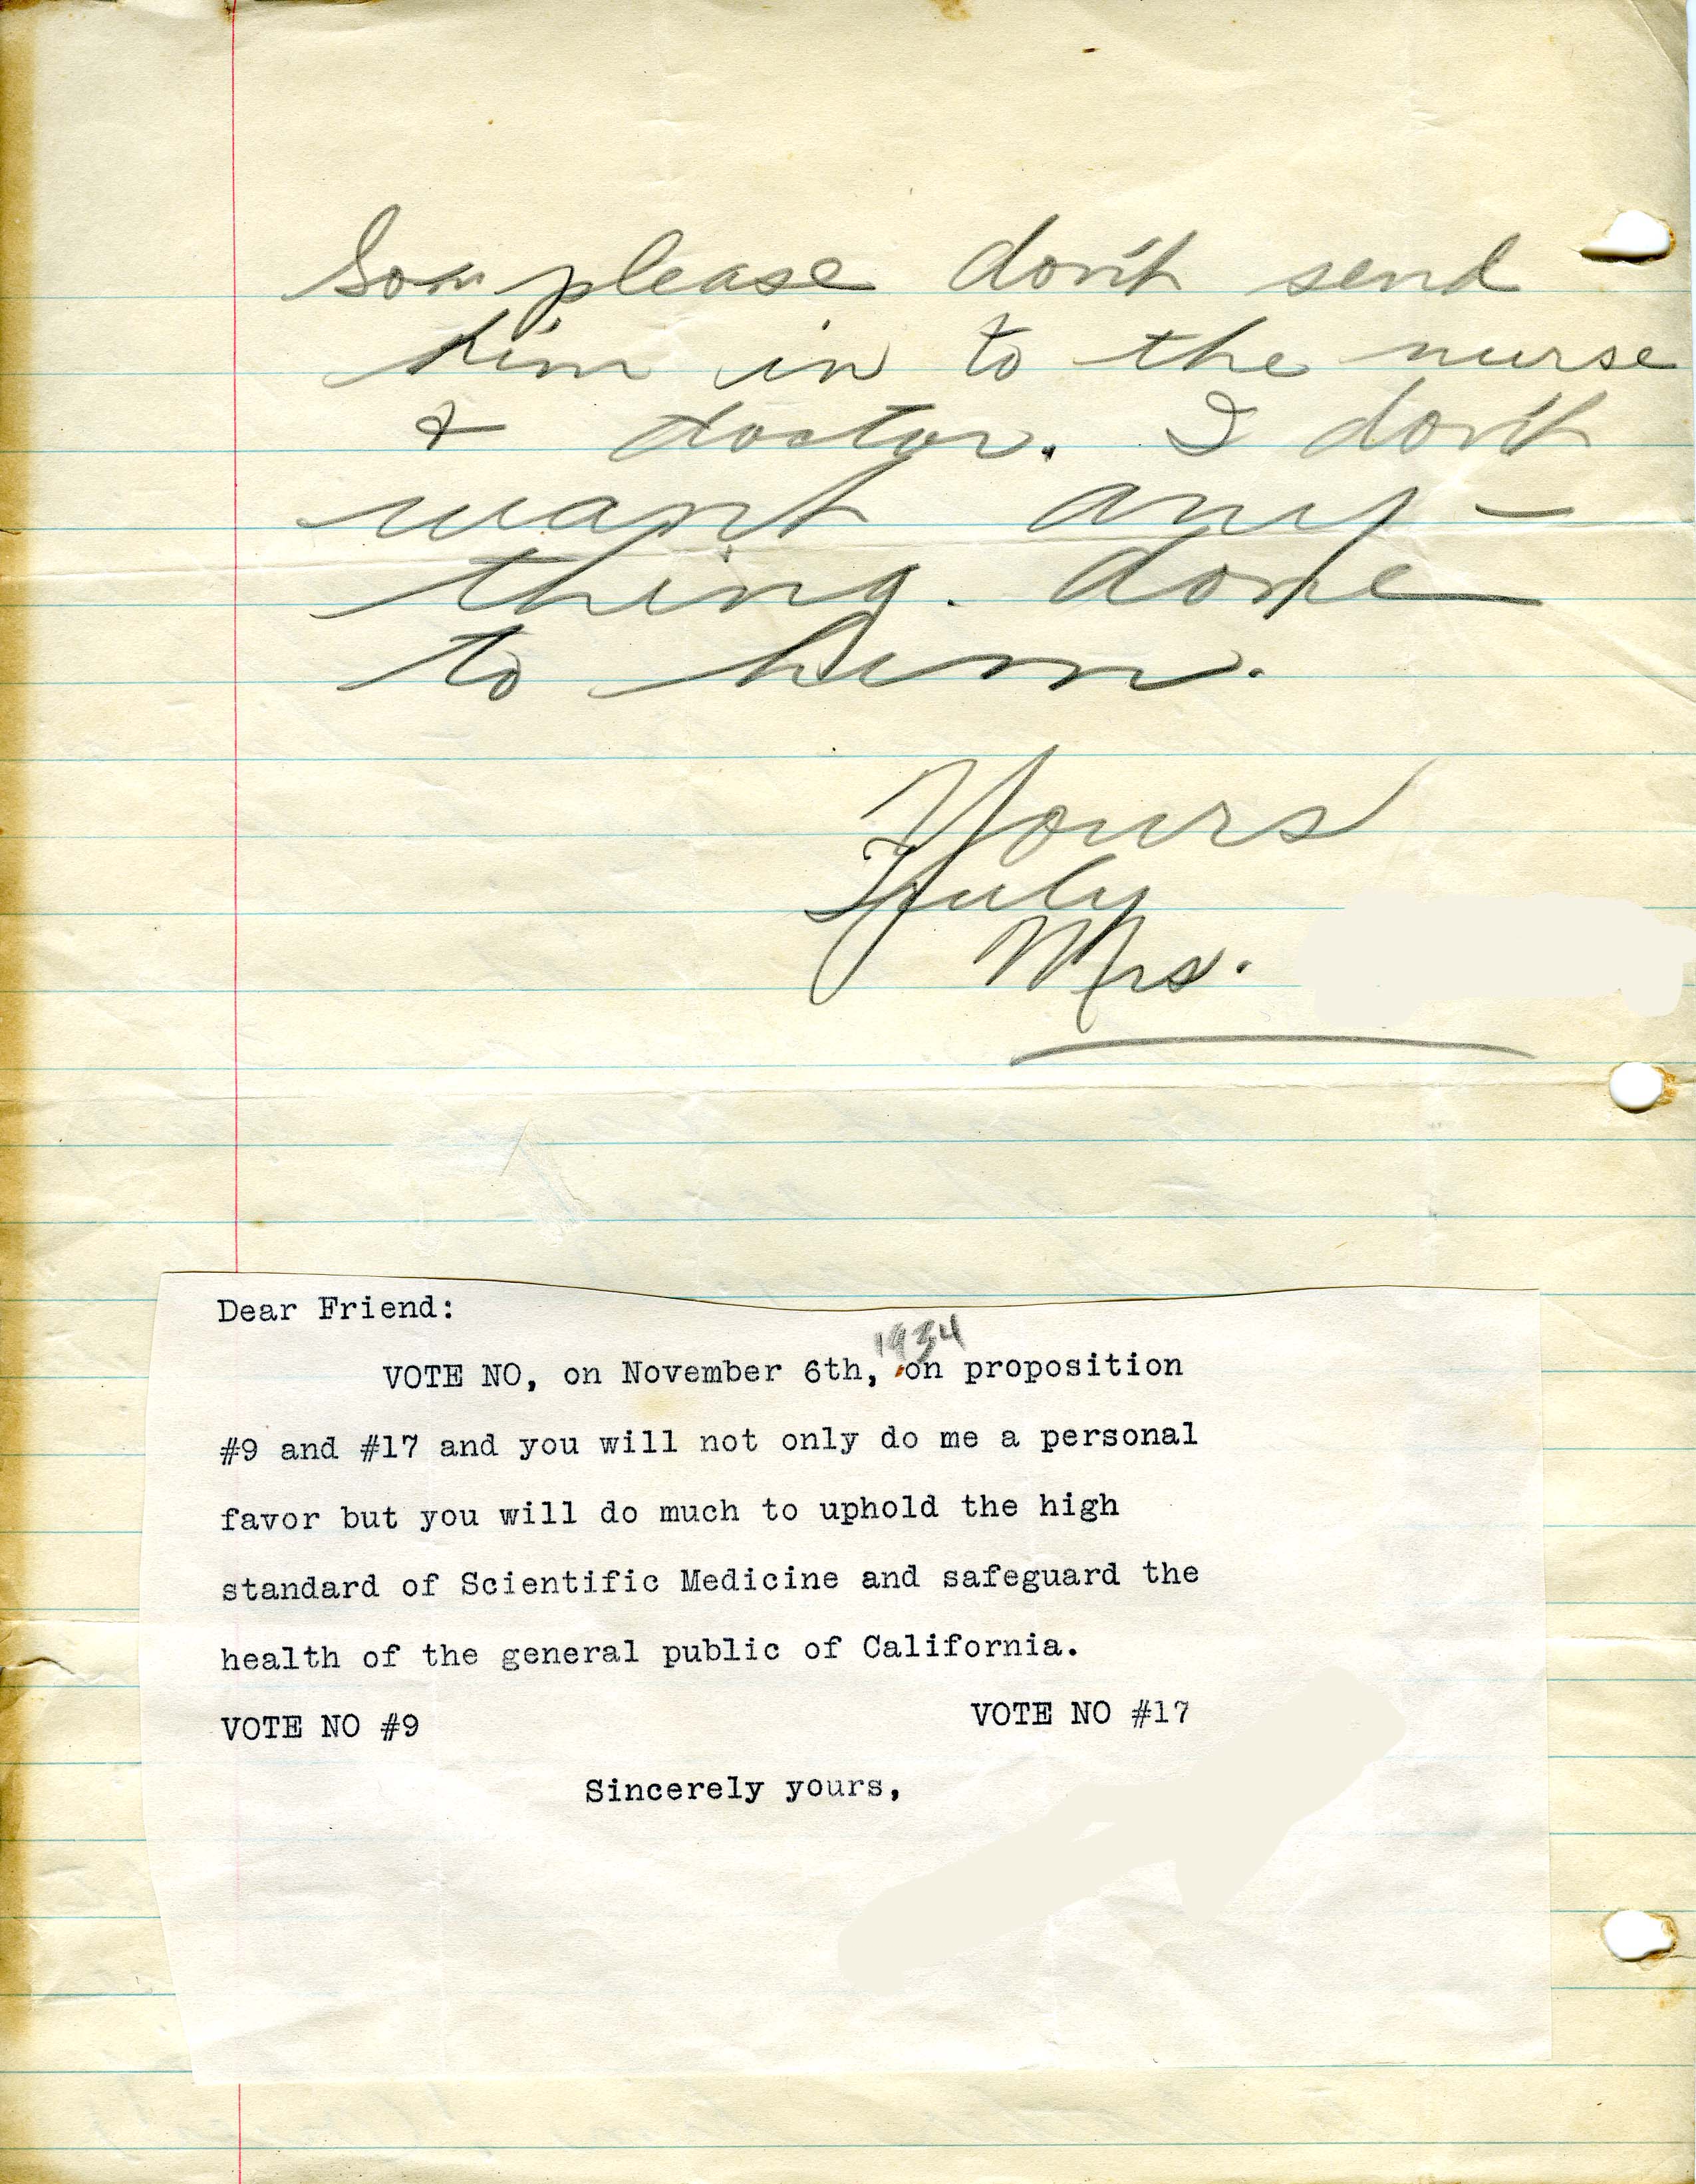 Son please don't send
him in to the nurse
& doctor. I don't
want any-
thing. done
to him.
Yours
Truly
Mrs.
Dear Friend:
1934
VOTE NO, on November 6th, on proposition
#9 and #17 and you will not only do me a personal
favor but you will do much to uphold the high
standard of Scientific Medicine and safeguard the
health of the general public of California.
VOTE NO #9 VOTE NO #17
Sincerely yours,